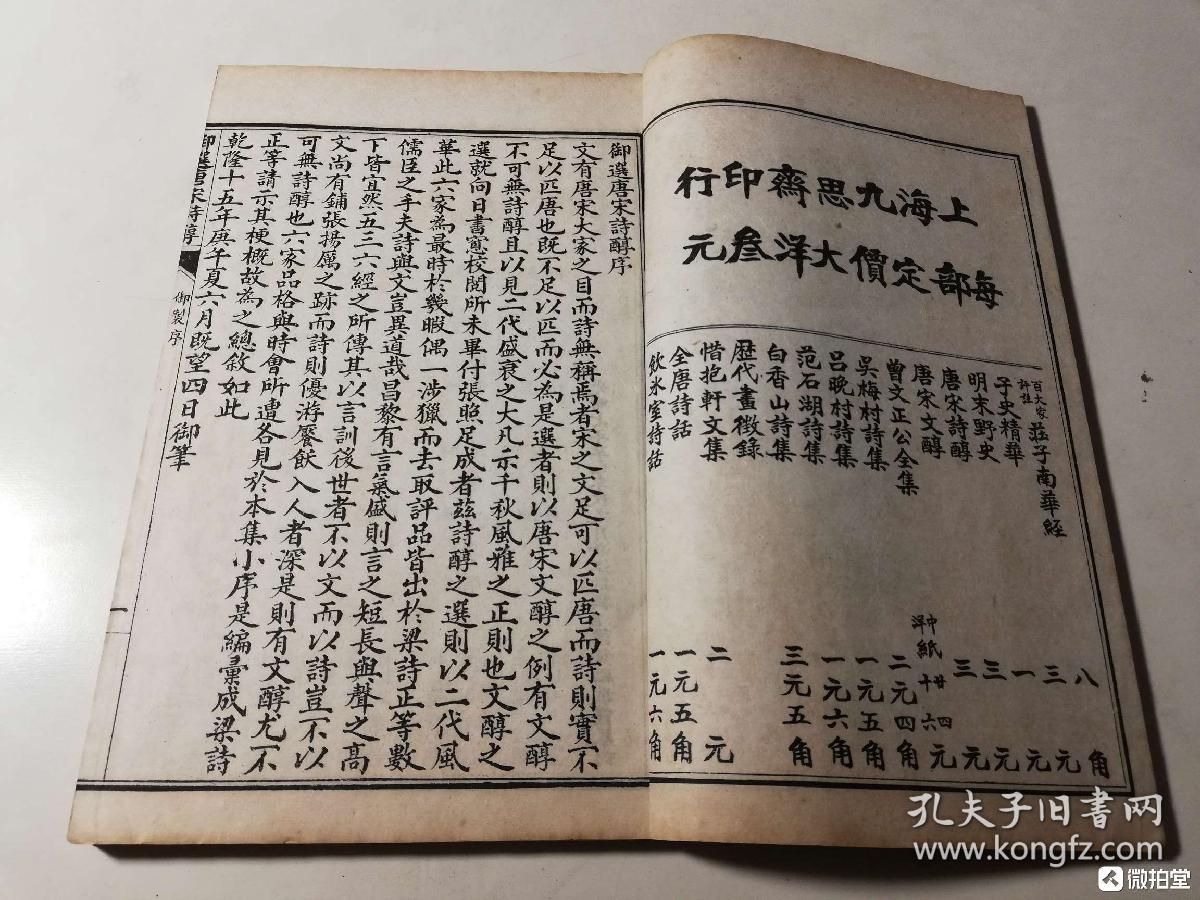 上海九思齋印行
每部定價大洋叁元
百大家評註莊子南華經 八角
子史精華 三元
明末野史 一元
唐宋詩醇 三元
唐宋文醇 三元
曾文正公全集 中紙廿四 洋紙十六 元
吳梅村詩集 二元四角
呂晚村詩集 一元五角
范石湖詩集 一元六角
白香山詩集 三元五角
歷代畫徵錄
惜抱軒文集 二元
全唐詩話 一元五角
飲冰室詩話 一元六角
御選唐宋詩醇序
文有唐宋大家之目而詩無稱焉者宋之文足可以匹唐而詩則實不
足以匹唐也既不足以匹而必為是選者則以唐宋文醇之例有文醇
不可無詩醇且以見二代盛衰之大凡示千秋風雅之正則也文醇之
選就向日書窻校閱所未畢付張照足成者茲詩醇之選則以二代風
華此六家為最時於幾暇偶一涉獵而去取評品皆出於梁詩正等數
儒臣之手夫詩與文豈異道哉昌黎有言氣盛則言之短長與聲之高
下皆宜然五三六經之所傳其以言訓後世者不以文而以詩豈不以
文尚有鋪張揚厲之跡而詩則優游饜飫入人者深是則有文醇尤不
可無詩醇也六家品格與時會所遭各見於本集小序是編彙成梁詩
正等請示其梗概故為之總敘如此
乾隆十五年庚午夏六月既望四日御筆
御選唐宋詩醇 御製序 一
孔夫子旧书网
www.kongfz.com
微拍堂